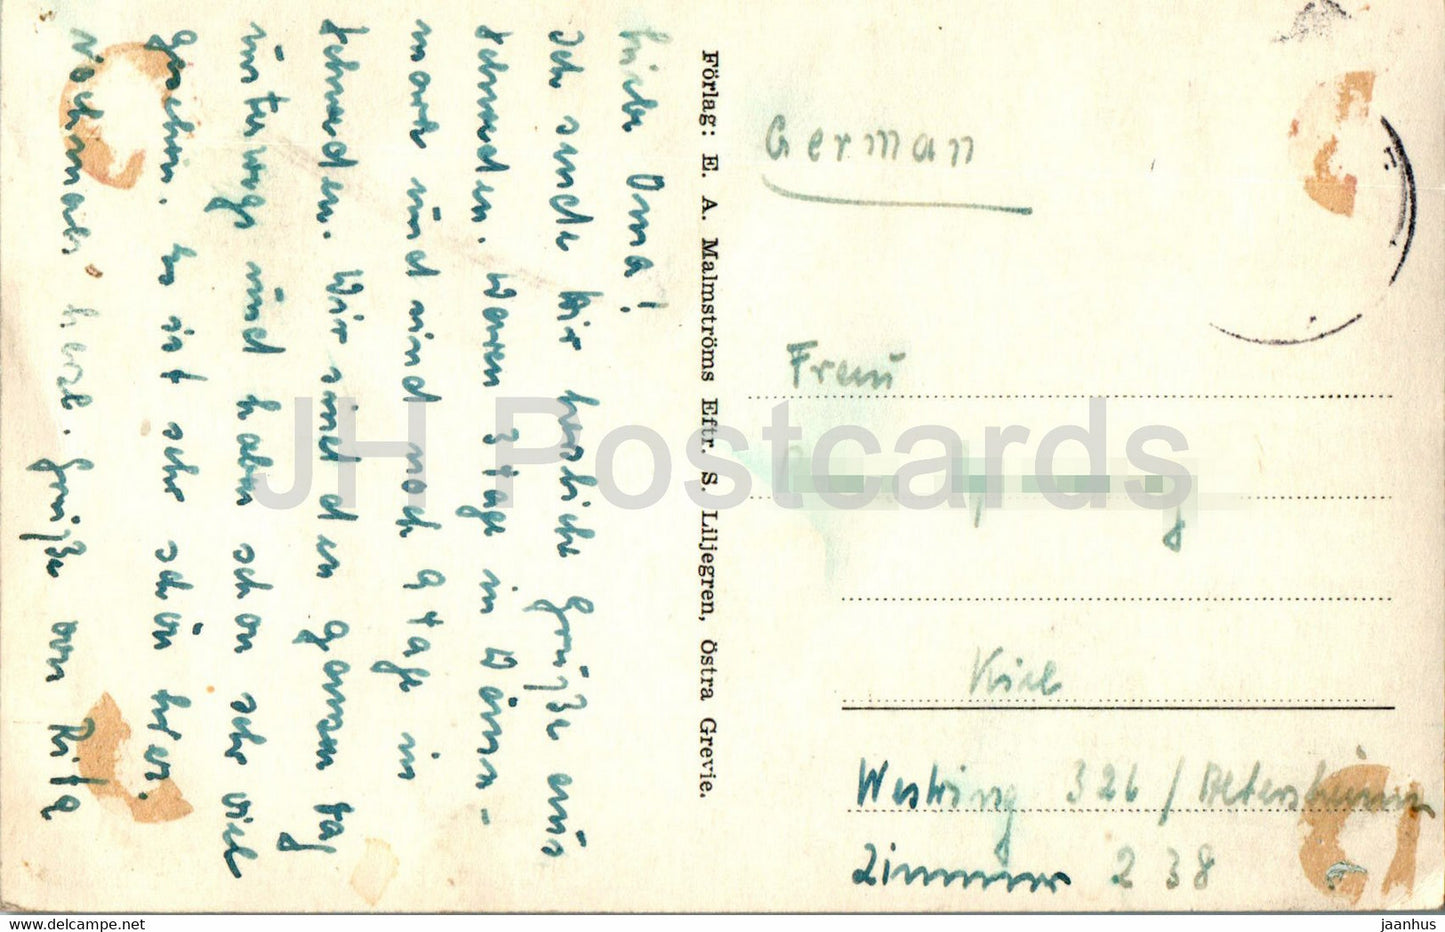 Liebe Oma!
Ich sende Dir herzliche Grüße aus
Schweden. Waren 3 Tage in Däne-
mark und sind noch 9 Tage in
Schweden. Wir sind den ganzen Tag
unterwegs und haben schon sehr viel
gesehen. Es ist sehr schön hier.
Nochmals herzl. Grüße von Rita
Förlag: E. A. Malmströms Eftr. S. Liljegren, Östra Grevie.
German
Frau
Kiel
Westring 326 / Altersheim
Zimmer 238
JH Postcards
www.jhpostcards.com
jaanhus